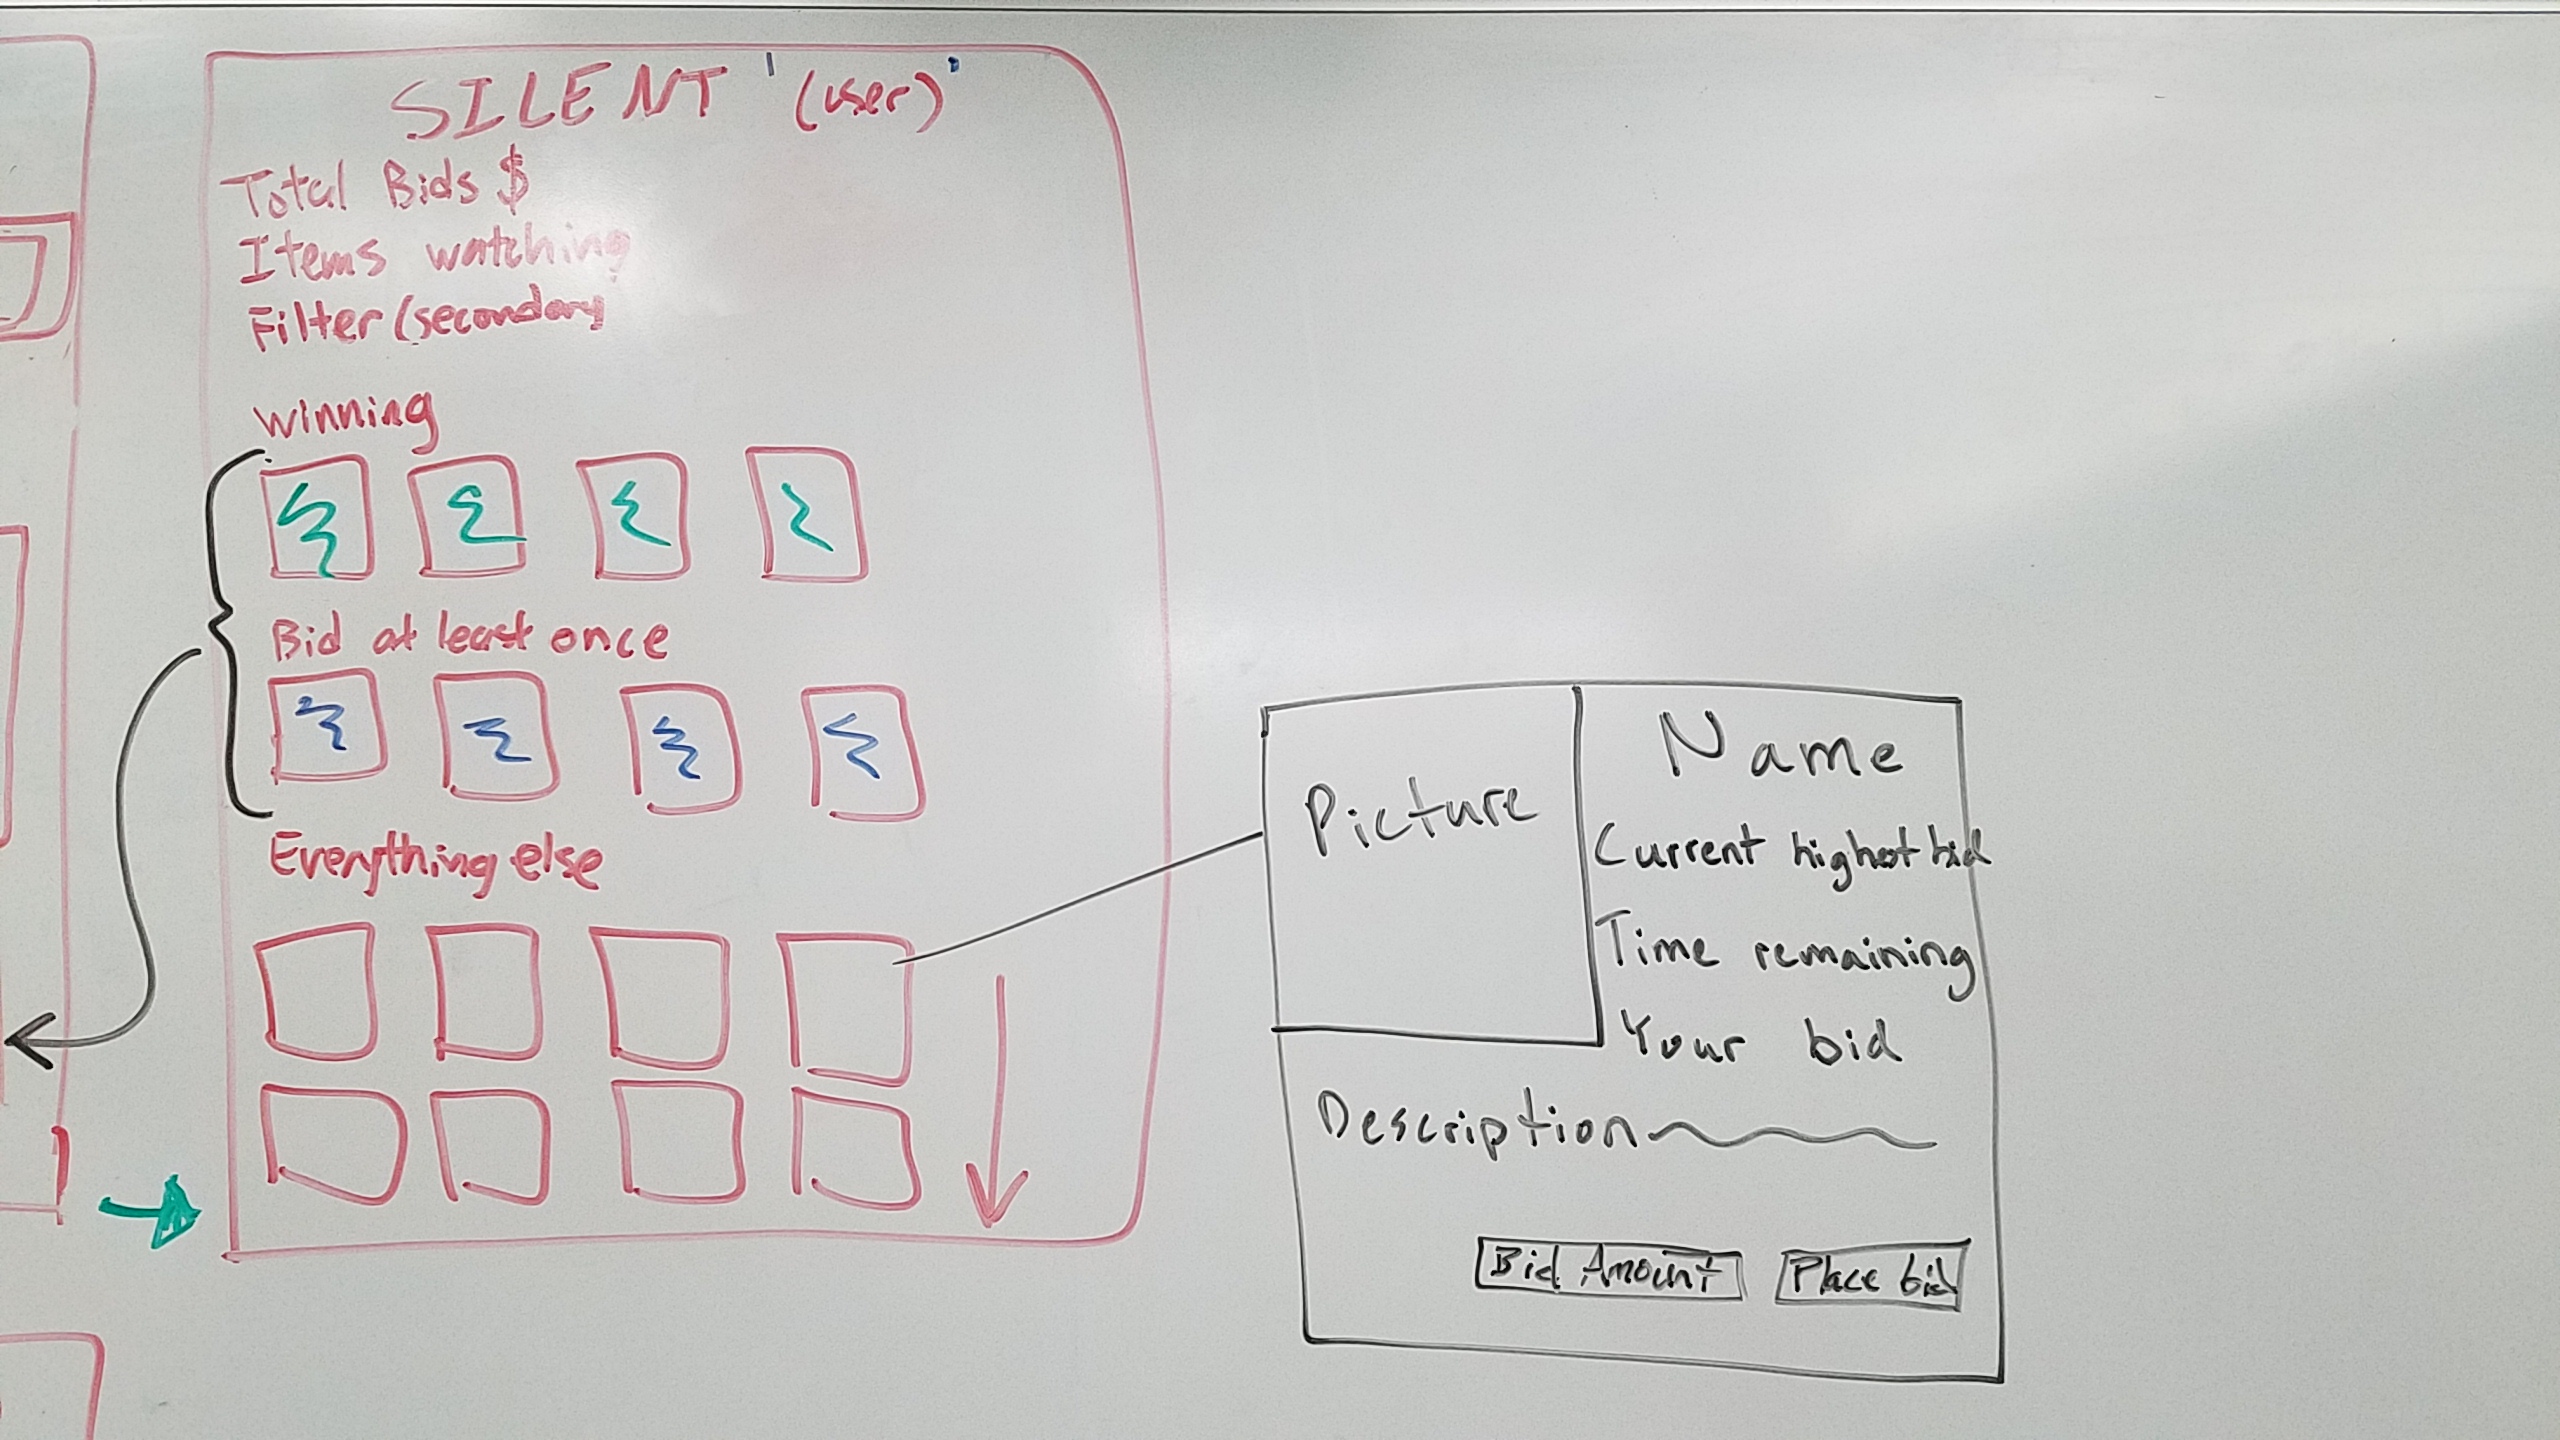 SILENT (user)
Total Bids $
Items watching
Filter (secondary
winning
Bid at least once
Everything else
Picture
Name
Current highest bid
Time remaining
Your bid
Description
Bid Amount
Place bid